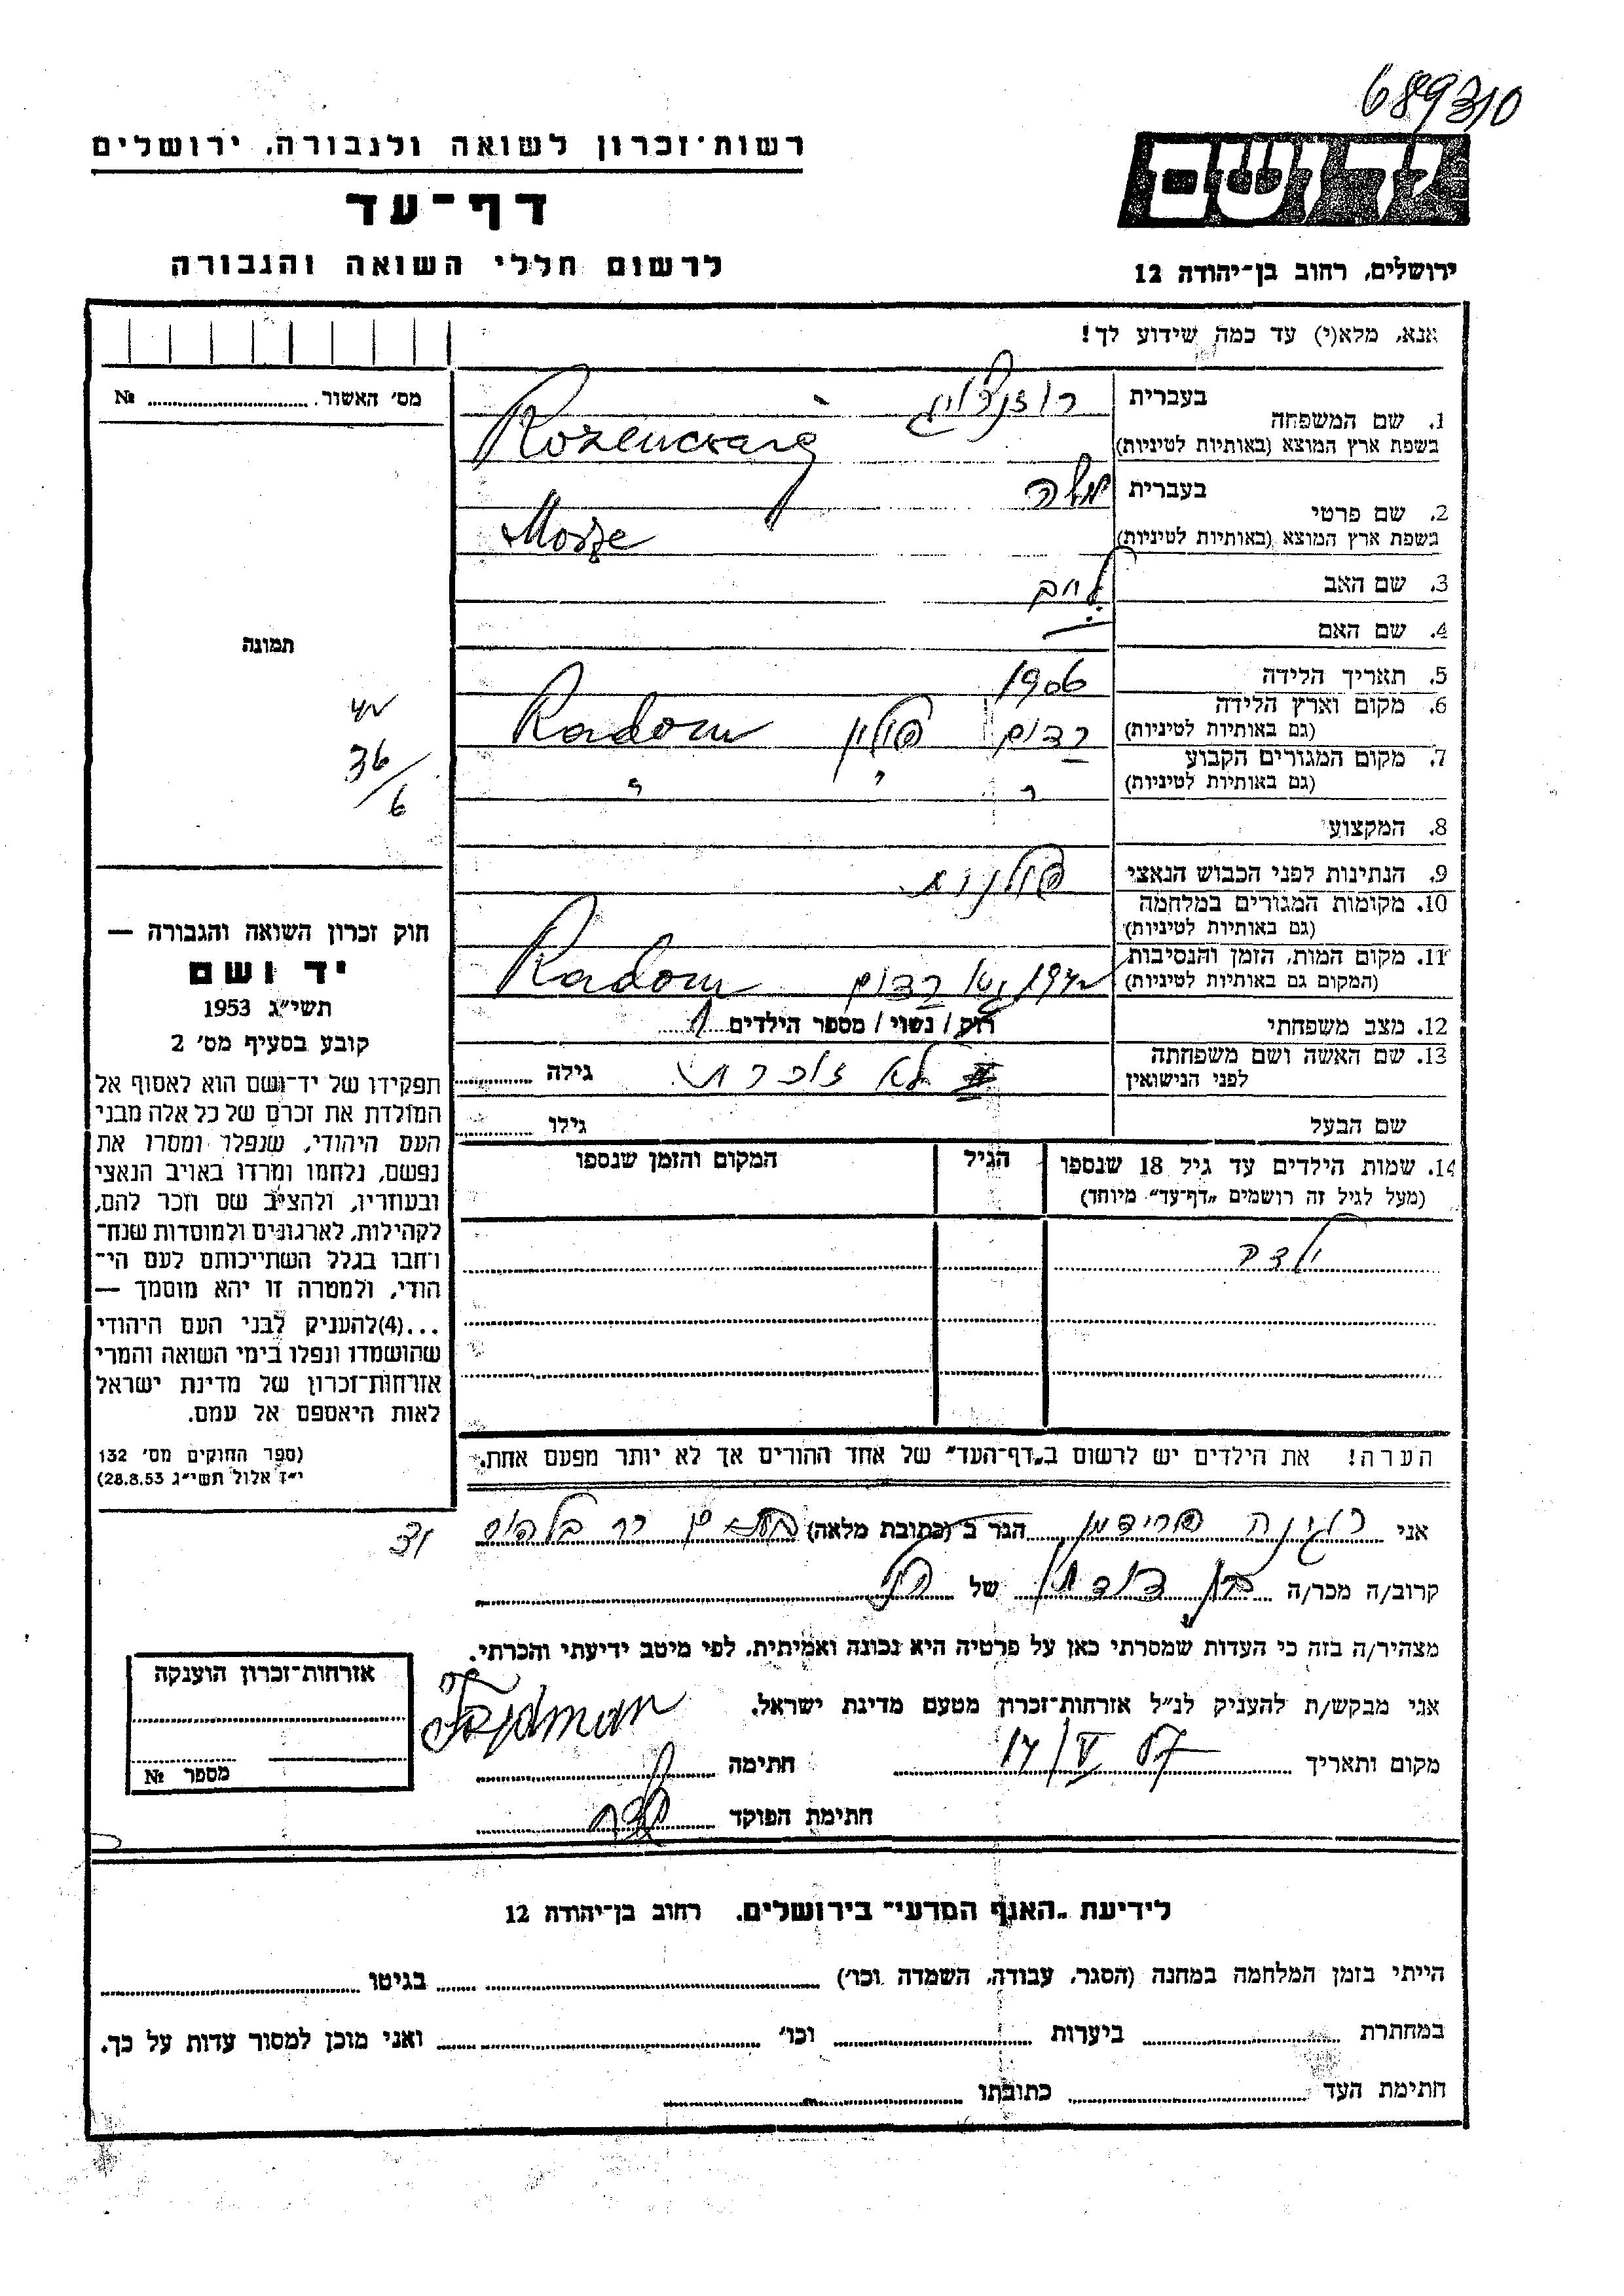 689310
רשות-זכרון לשואה ולגבורה, ירושלים
יד ושם
דף-עד
לרשום חללי השואה והגבורה
ירושלים, רחוב בן-יהודה 12
אנא, מלא(י) עד כמה שידוע לך!
מס׳ האשור. № 
1. שם המשפחה בעברית רוזנצוייג
בשפת ארץ המוצא (באותיות לטיניות) Rozencwaig
2. שם פרטי בעברית משה
בשפת ארץ המוצא (באותיות לטיניות) Mosze
3. שם האב חיים
4. שם האם —
תמונה
5. תאריך הלידה 1906
6. מקום וארץ הלידה (גם באותיות לטיניות) רדום פולין Radom
7. מקום המגורים הקבוע (גם באותיות לטיניות) " " "
36/6
8. המקצוע
9. הנתינות לפני הכבוש הנאצי פולנית
10. מקומות המגורים במלחמה (גם באותיות לטיניות)
11. מקום המות, הזמן והנסיבות (המקום גם באותיות לטיניות) 1942 גטו רדום Radom
12. מצב משפחתי רוק / נשוי / מספר הילדים 1
13. שם האשה ושם משפחתה לפני הנישואין לא זוכרת גילה
שם הבעל גילו
14. שמות הילדים עד גיל 18 שנספו הגיל המקום והזמן שנספו
(מעל לגיל זה רושמים „דף-עד״ מיוחד)
ילדה
הערה! את הילדים יש לרשום ב„דף-העד״ של אחד ההורים אך לא יותר מפעם אחת.
חוק זכרון השואה והגבורה —
יד ושם
תשי״ג 1953
קובע בסעיף מס׳ 2
תפקידו של יד-ושם הוא לאסוף אל
המולדת את זכרם של כל אלה מבני
העם היהודי, שנפלו ומסרו את
נפשם, נלחמו ומרדו באויב הנאצי
ובעוזריו, ולהציב שם וזכר להם,
לקהילות, לארגונים ולמוסדות שנח־
רחבו בגלל השתייכותם לעם הי־
הודי, ולמטרה זו יהא מוסמך —
...(4)להעניק לבני העם היהודי
שהושמדו ונפלו בימי השואה והמרי
אזרחות-זכרון של מדינת ישראל
לאות היאספם אל עמם.
(ספר החוקים מס׳ 132
י״ז אלול תשי״ג 28.8.53)
אני רגינה פרידמן הגר ב (כתובת מלאה) בת-ים
קרוב/ה מכר/ה בן דודתו של
מצהיר/ה בזה כי העדות שמסרתי כאן על פרטיה היא נכונה ואמיתית, לפי מיטב ידיעתי והכרתי.
אני מבקש/ת להעניק לנ״ל אזרחות-זכרון מטעם מדינת ישראל.
מקום ותאריך 14/V 57 חתימה Frydman
חתימת הפוקד
אזרחות-זכרון הוענקה
מספר №
לידיעת „האגף המדעי״ בירושלים, רחוב בן-יהודה 12
הייתי בזמן המלחמה במחנה (הסגר, עבודה, השמדה וכו׳) בגיטו
במחתרת ביערות וכו׳ ואני מוכן למסור עדות על כך.
חתימת העד כתובתו